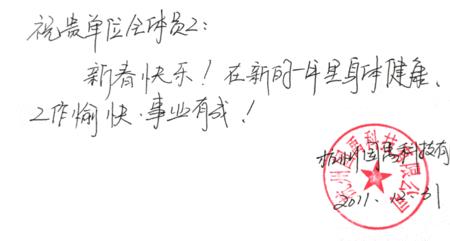 祝贵单位全体员工:
新春快乐!在新的一年里身体健康、
工作愉快、事业有成!
杭州国禹科技有
2011.12.31